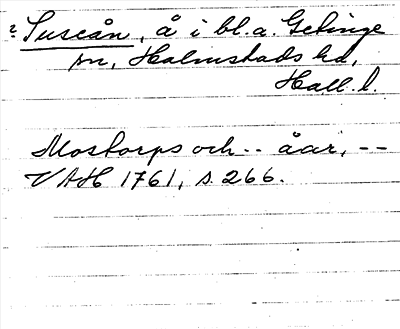 ? Suseån, å i bl.a. Getinge
sn, Halmstads hd,
Hall. l.
Mostorps och -- åar, --
VAH 1761, s. 266.